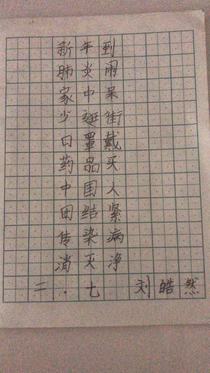 新年到
肺炎闹
家中呆
少逛街
口罩戴
药品买
中国人
团结紧
传染病
消灭净
二.七 刘皓然